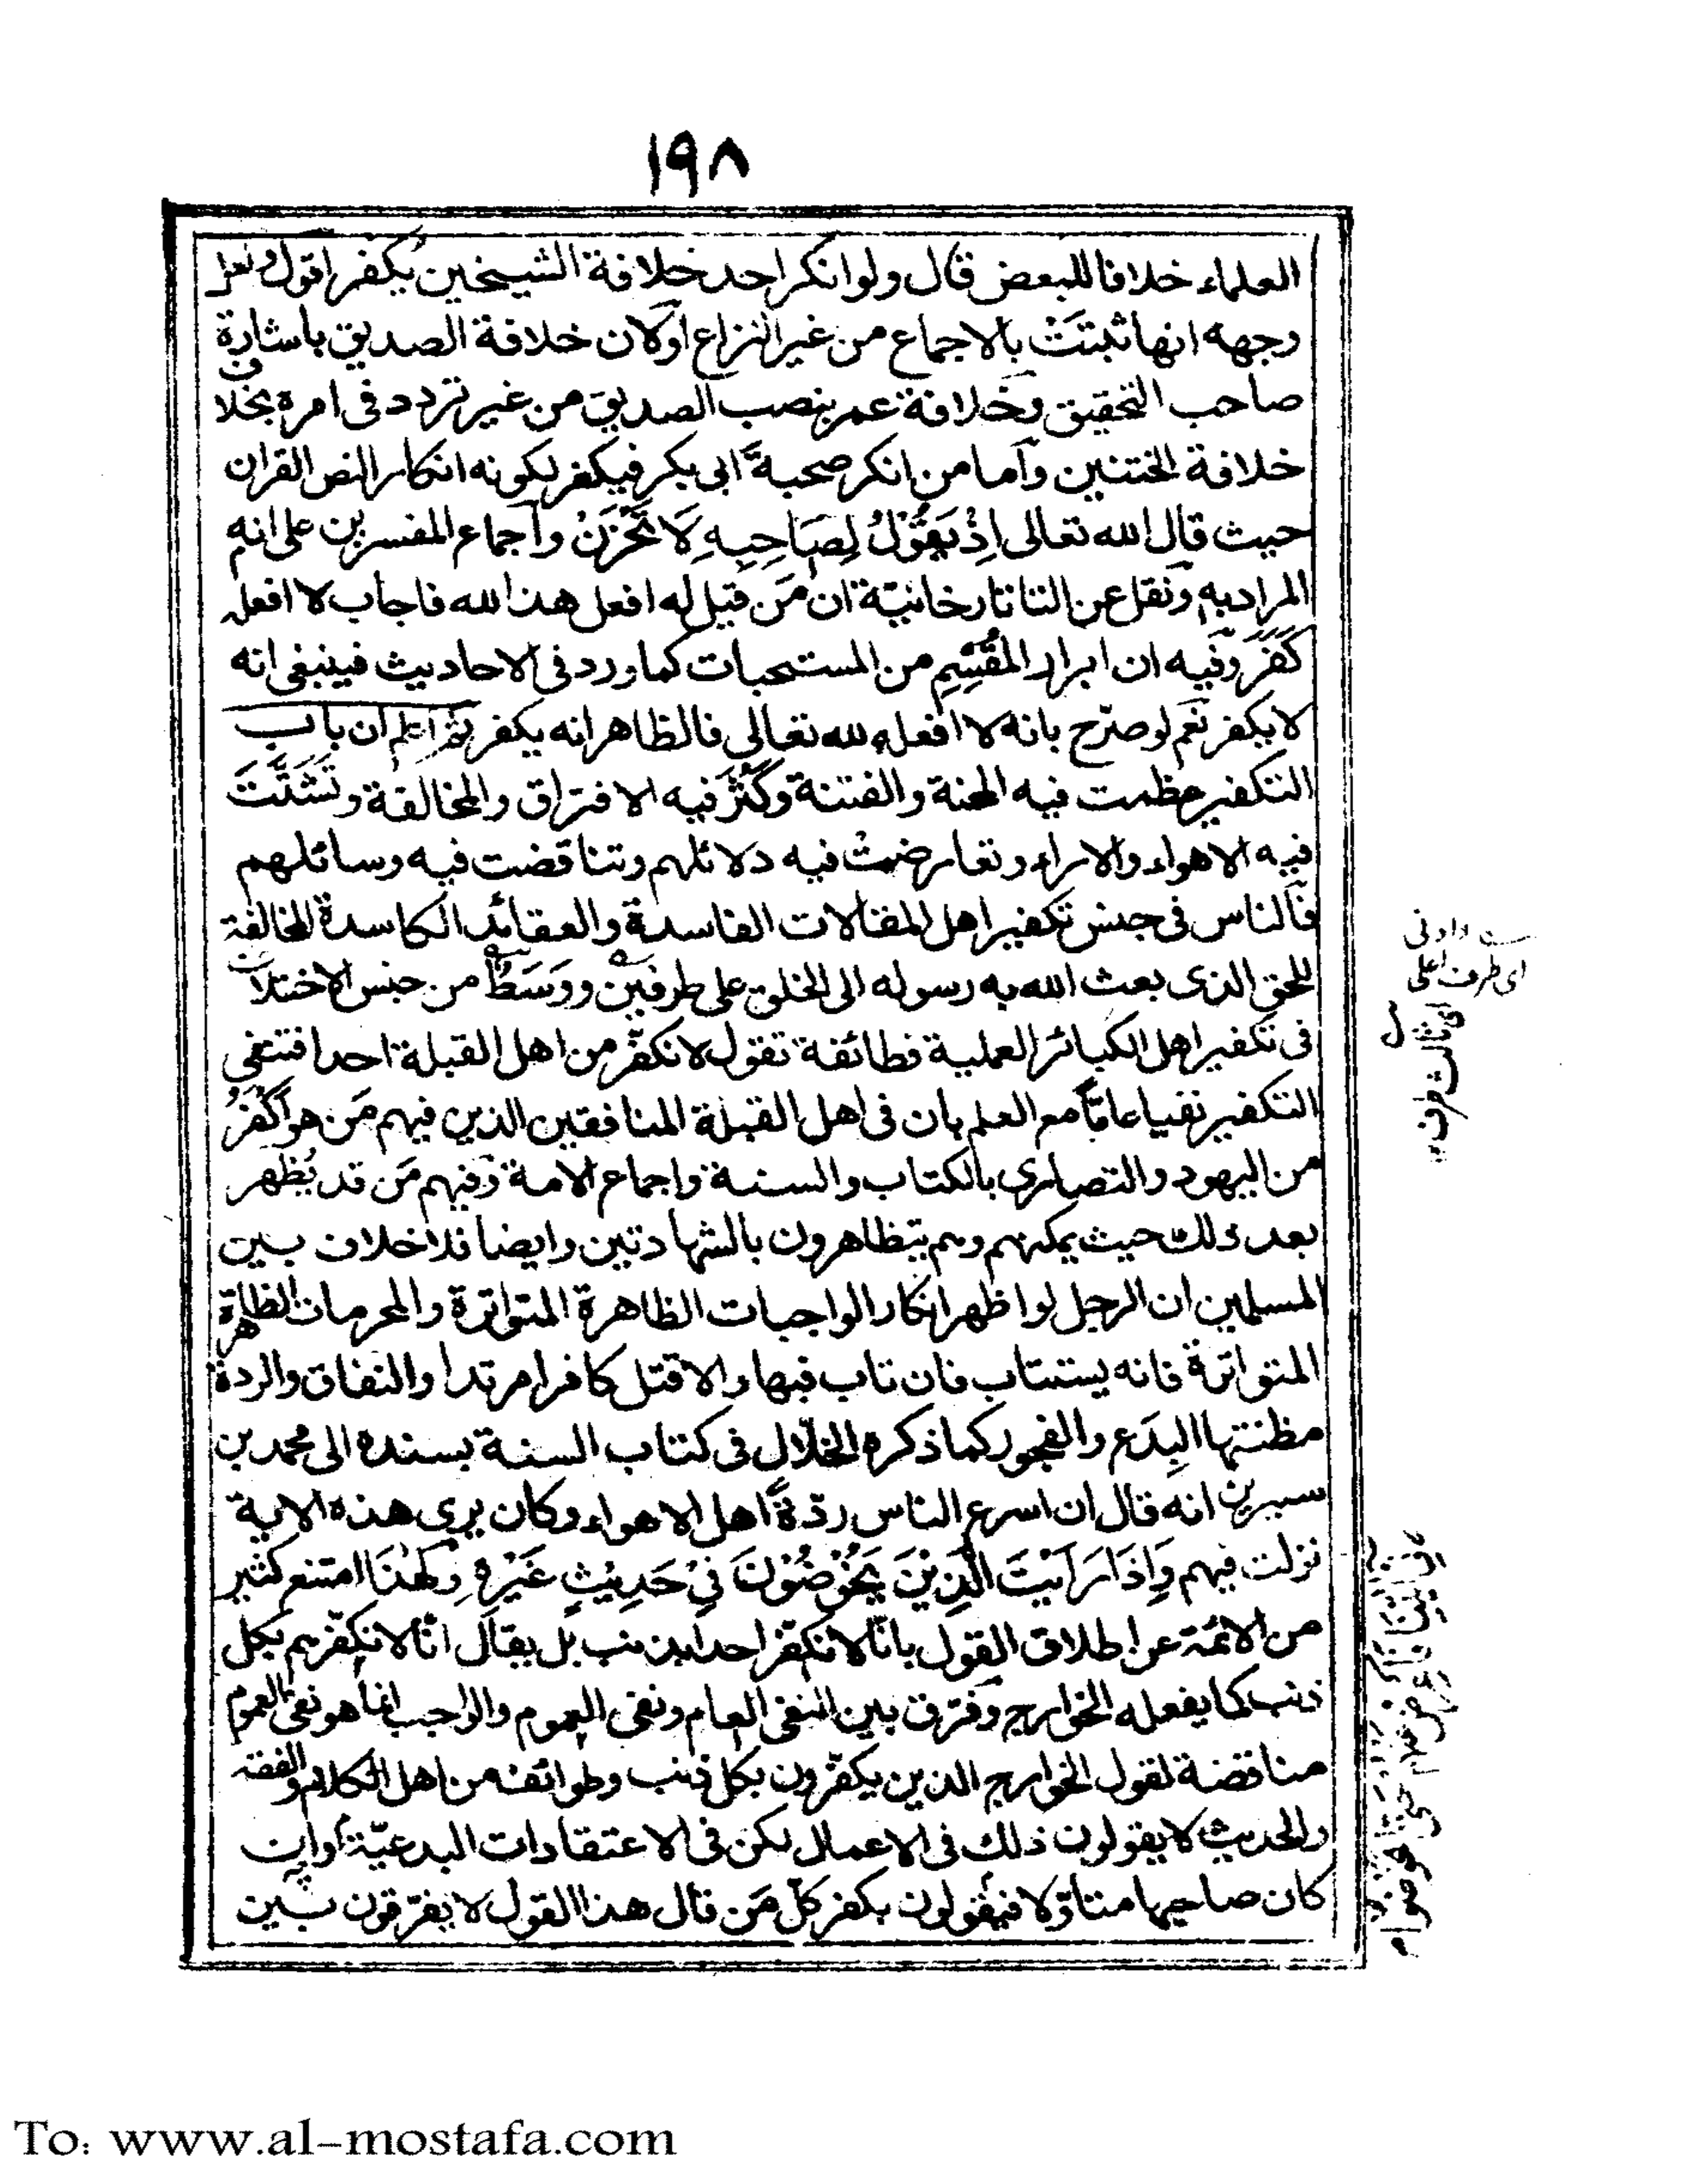 ١٩٨
العلماء خلافا للبعض قال ولو انكر احد خلافة الشيخين يكفر اقول ولعل
وجهه انها ثبتَتْ بالاجماع من غير النزاع اوكان خلافة الصديق باشارة
صاحب التحقيق وخلافة عمر بنصب الصديق من غير تردد فى امره بخلاف
خلافة الختنين وأما من انكر صحبة ابى بكر فيكفر لكونه انكار النص القران
حيث قال الله تعالى اِذْ يَقُوْلُ لِصَاحِبِهٖ لَا تَحْزَنْ وأجماع المفسرين على انه
المراد به ونقل عن التاتارخانيّة ان مَن قيل له افعل هذا لله فاجاب لا افعله
كَفَرَ وفيه ان ابرار المُقْسِم من المستحبات كما ورد فى الاحاديث فينبغى انه
لا يكفر نَعَم لو صرّح بانه لا افعله لله تعالى فالظاهر انه يكفر ثم اعلم ان باب
التكفير عظمت فيه المحنة والفتنة وكَثُرَ فيه الافتراق والمخالفة وتَشَتَّتَ
فيه الاهواء والاراء وتعارضت فيه دلائلهم وتناقضت فيه وسائلهم
فالناس فى جنس تكفير اهل المقالات الفاسدة والعقائد الكاسدة المخالفة
للحق الذى بعث الله به رسوله الى الخلق على طرفين ووَسَطٌ من جنس الاختلاف
فى تكفير اهل الكبائر العملية فطائفة تقول لا نكفّر من اهل القبلة احدا فتنفى
التكفير نفيا عامّا مع العلم بان فى اهل القبلة المنافقين الذين فيهم مَن هو اَكْفَرُ
من اليهود والنصارى بالكتاب والسنة واجماع الامة وفيهم مَن قد يُظهر
بعد ذلك حيث يمكنهم وهم يتظاهرون بالشهادتين وايضا فلا خلاف بين
المسلمين ان الرجل لو اظهر انكار الواجبات الظاهرة المتواترة والمحرمات الظاهرة
المتواترة فانه يستتاب فان تاب فبها والا قتل كافرا مرتدا والنفاق والردة
مظنتها البِدَع والفجور كما ذكره الخلّال فى كتاب السنة بسنده الى محمد بن
سيرين انه قال ان اسرع الناس ردّةً اهل الاهواء وكان يرى هذه الاية
نزلت فيهم وَاِذَا رَاَيْتَ الَّذِيْنَ يَخُوْضُوْنَ فِيْ حَدِيْثٍ غَيْرِهٖ ولهٰذَا امتنع كثير
من الائمة عن اطلاق القول بانّا لا نكفّر احدا بذنب بل يقال انّا لا نكفّرهم بكل
ذنب كما يفعله الخوارج وفَرْق بين النفى العام ونفى العموم والواجب انما هو نفى العموم
مناقضة لقول الخوارج الذين يكفّرون بكل ذنب وطوائف من اهل الكلام والفقه
والحديث لا يقولون ذلك فى الاعمال لكن فى الاعتقادات البدعيّة وان
كان صاحبها متاوّلا فيقولون بكفر كلّ مَن قال هذا القول لا يفرّقون بين
اى طرف اعلى
وادنى
To: www.al-mostafa.com